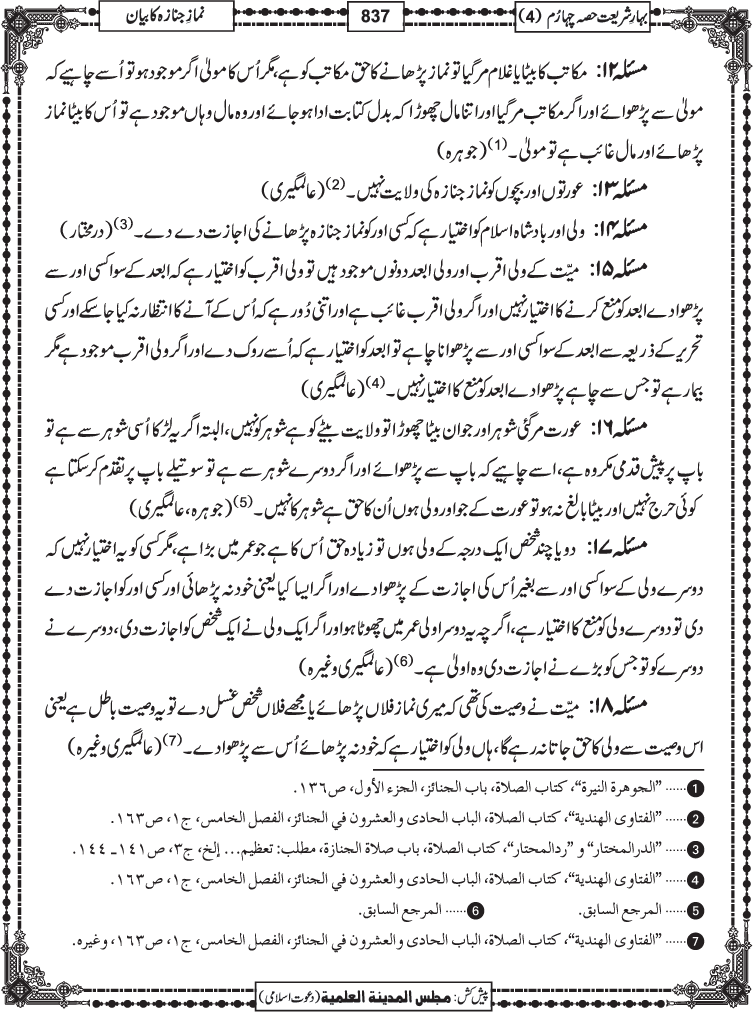 بہارِشریعت حصہ چہارم (4)
837
نمازِ جنازہ کا بیان
مسئلہ ۱۲: مکاتب کا بیٹا یا غلام مرگیا تو نماز پڑھانے کا حق مکاتب کو ہے، مگر اُس کا مولیٰ اگر موجود ہو تو اُسے چاہیے کہ
مولیٰ سے پڑھوائے اور اگر مکاتب مرگیا اور اتنا مال چھوڑا کہ بدل کتابت ادا ہو جائے اور وہ مال وہاں موجود ہے تو اُس کا بیٹا نماز
پڑھائے اور مال غائب ہے تو مولیٰ۔ (1) (جوہرہ)
مسئلہ ۱۳: عورتوں اور بچوں کو نماز جنازہ کی ولایت نہیں۔ (2) (عالمگیری)
مسئلہ ۱۴: ولی اور بادشاہ اسلام کو اختیار ہے کہ کسی اور کو نماز جنازہ پڑھانے کی اجازت دے دے۔ (3) (درمختار)
مسئلہ ۱۵: میّت کے ولی اقرب اور ولی ابعد دونوں موجود ہیں تو ولی اقرب کو اختیار ہے کہ ابعد کے سوا کسی اور سے
پڑھوا دے ابعد کو منع کرنے کا اختیار نہیں اور اگر ولی اقرب غائب ہے اور اتنی دُور ہے کہ اُس کے آنے کا انتظار نہ کیا جا سکے اور کسی
تحریر کے ذریعہ سے ابعد کے سوا کسی اور سے پڑھوانا چاہے تو ابعد کو اختیار ہے کہ اُسے روک دے اور اگر ولی اقرب موجود ہے مگر
بیمار ہے تو جس سے چاہے پڑھوا دے ابعد کو منع کا اختیار نہیں۔ (4) (عالمگیری)
مسئلہ ۱۶: عورت مرگئی شوہر اور جوان بیٹا چھوڑا تو ولایت بیٹے کو ہے شوہر کو نہیں، البتہ اگر یہ لڑکا اُسی شوہر سے ہے تو
باپ پر پیش قدمی مکروہ ہے، اسے چاہیے کہ باپ سے پڑھوائے اور اگر دوسرے شوہر سے ہے تو سوتیلے باپ پر تقدّم کر سکتا ہے
کوئی حرج نہیں اور بیٹا بالغ نہ ہو تو عورت کے جو اور ولی ہوں اُن کا حق ہے شوہر کا نہیں۔ (5) (جوہرہ، عالمگیری)
مسئلہ ۱۷: دو یا چند شخص ایک درجہ کے ولی ہوں تو زیادہ حق اُس کا ہے جو عمر میں بڑا ہے، مگر کسی کو یہ اختیار نہیں کہ
دوسرے ولی کے سوا کسی اور سے بغیر اُس کی اجازت کے پڑھوا دے اور اگر ایسا کیا یعنی خود نہ پڑھائی اور کسی اور کو اجازت دے
دی تو دوسرے ولی کو منع کا اختیار ہے، اگرچہ یہ دوسرا ولی عمر میں چھوٹا ہو اور اگر ایک ولی نے ایک شخص کو اجازت دی، دوسرے نے
دوسرے کو تو جس کو بڑے نے اجازت دی وہ اولیٰ ہے۔ (6) (عالمگیری وغیرہ)
مسئلہ ۱۸: میّت نے وصیت کی تھی کہ میری نماز فلاں پڑھائے یا مجھے فلاں شخص غسل دے تو یہ وصیت باطل ہے یعنی
اس وصیت سے ولی کا حق جاتا نہ رہے گا، ہاں ولی کو اختیار ہے کہ خود نہ پڑھائے اُس سے پڑھوا دے۔ (7) (عالمگیری وغیرہ)
1 ...... "الجوهرة النيرة"، كتاب الصلاة، باب الجنائز، الجزء الأول، ص١٣٦.
2 ...... "الفتاوى الهندية"، كتاب الصلاة، الباب الحادى والعشرون في الجنائز، الفصل الخامس، ج١، ص١٦٣.
3 ...... "الدرالمختار" و "ردالمحتار"، كتاب الصلاة، باب صلاة الجنازة، مطلب: تعظيم... إلخ، ج٣، ص١٤١ـ ١٤٤.
4 ...... "الفتاوى الهندية"، كتاب الصلاة، الباب الحادى والعشرون في الجنائز، الفصل الخامس، ج١، ص١٦٣.
5 ...... المرجع السابق. 6 ...... المرجع السابق.
7 ...... "الفتاوى الهندية"، كتاب الصلاة، الباب الحادى والعشرون في الجنائز، الفصل الخامس، ج١، ص١٦٣، وغيره.
پیش کش: مجلس المدينة العلمية (دعوت اسلامی)